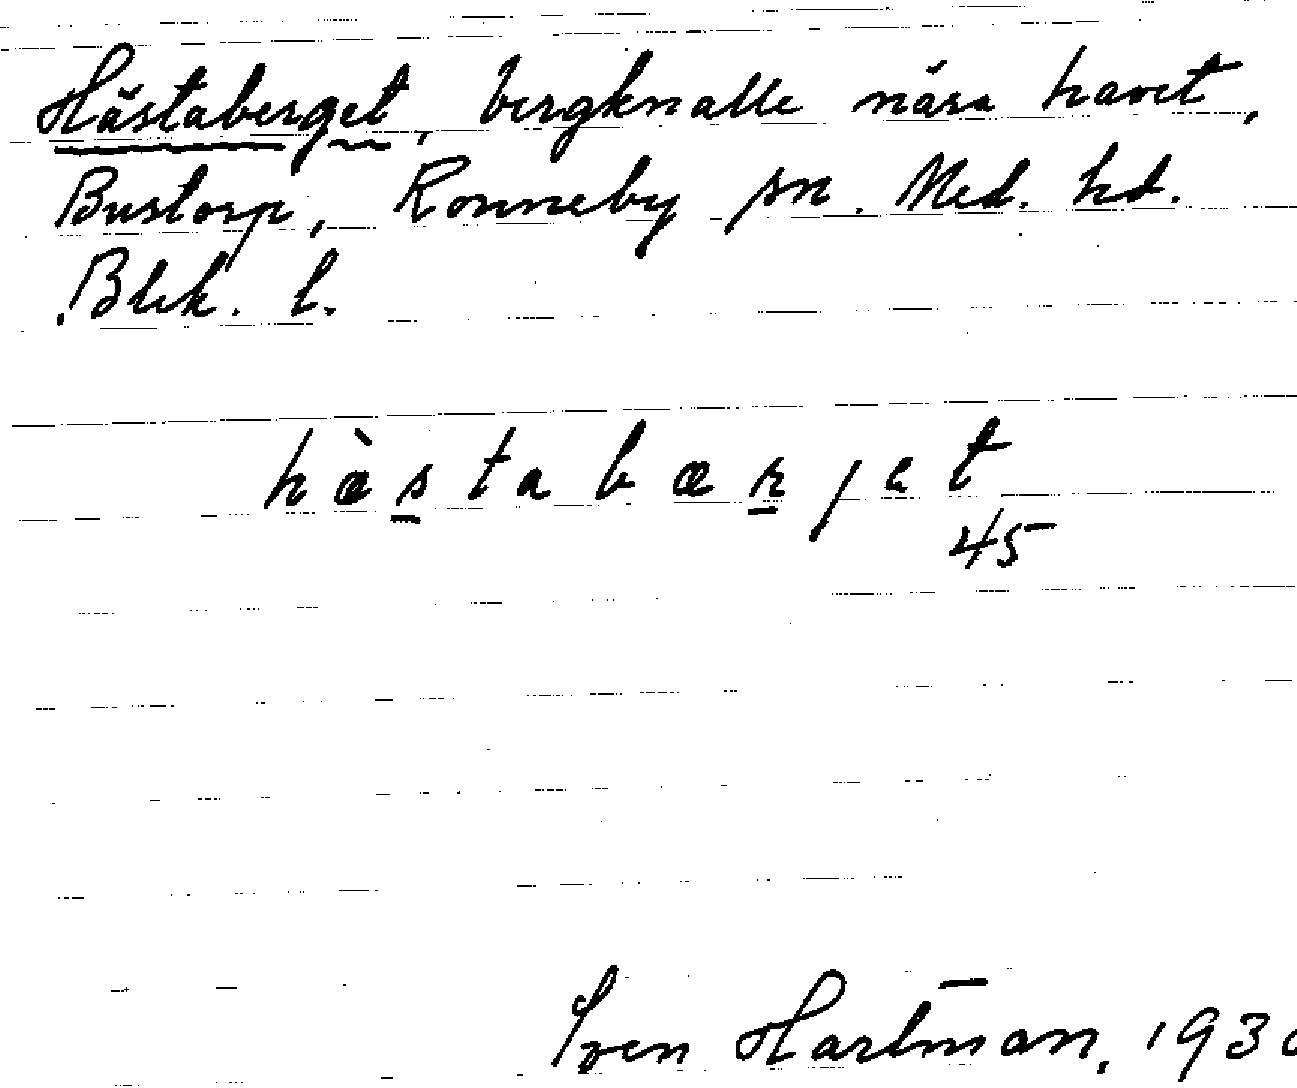 Hästaberget, bergknalle nära havet,
Bustorp, Ronneby sn. Med. hd.
Blek. l.
hæ̀s̲tabær̲jet
45
Sven Hartman, 193